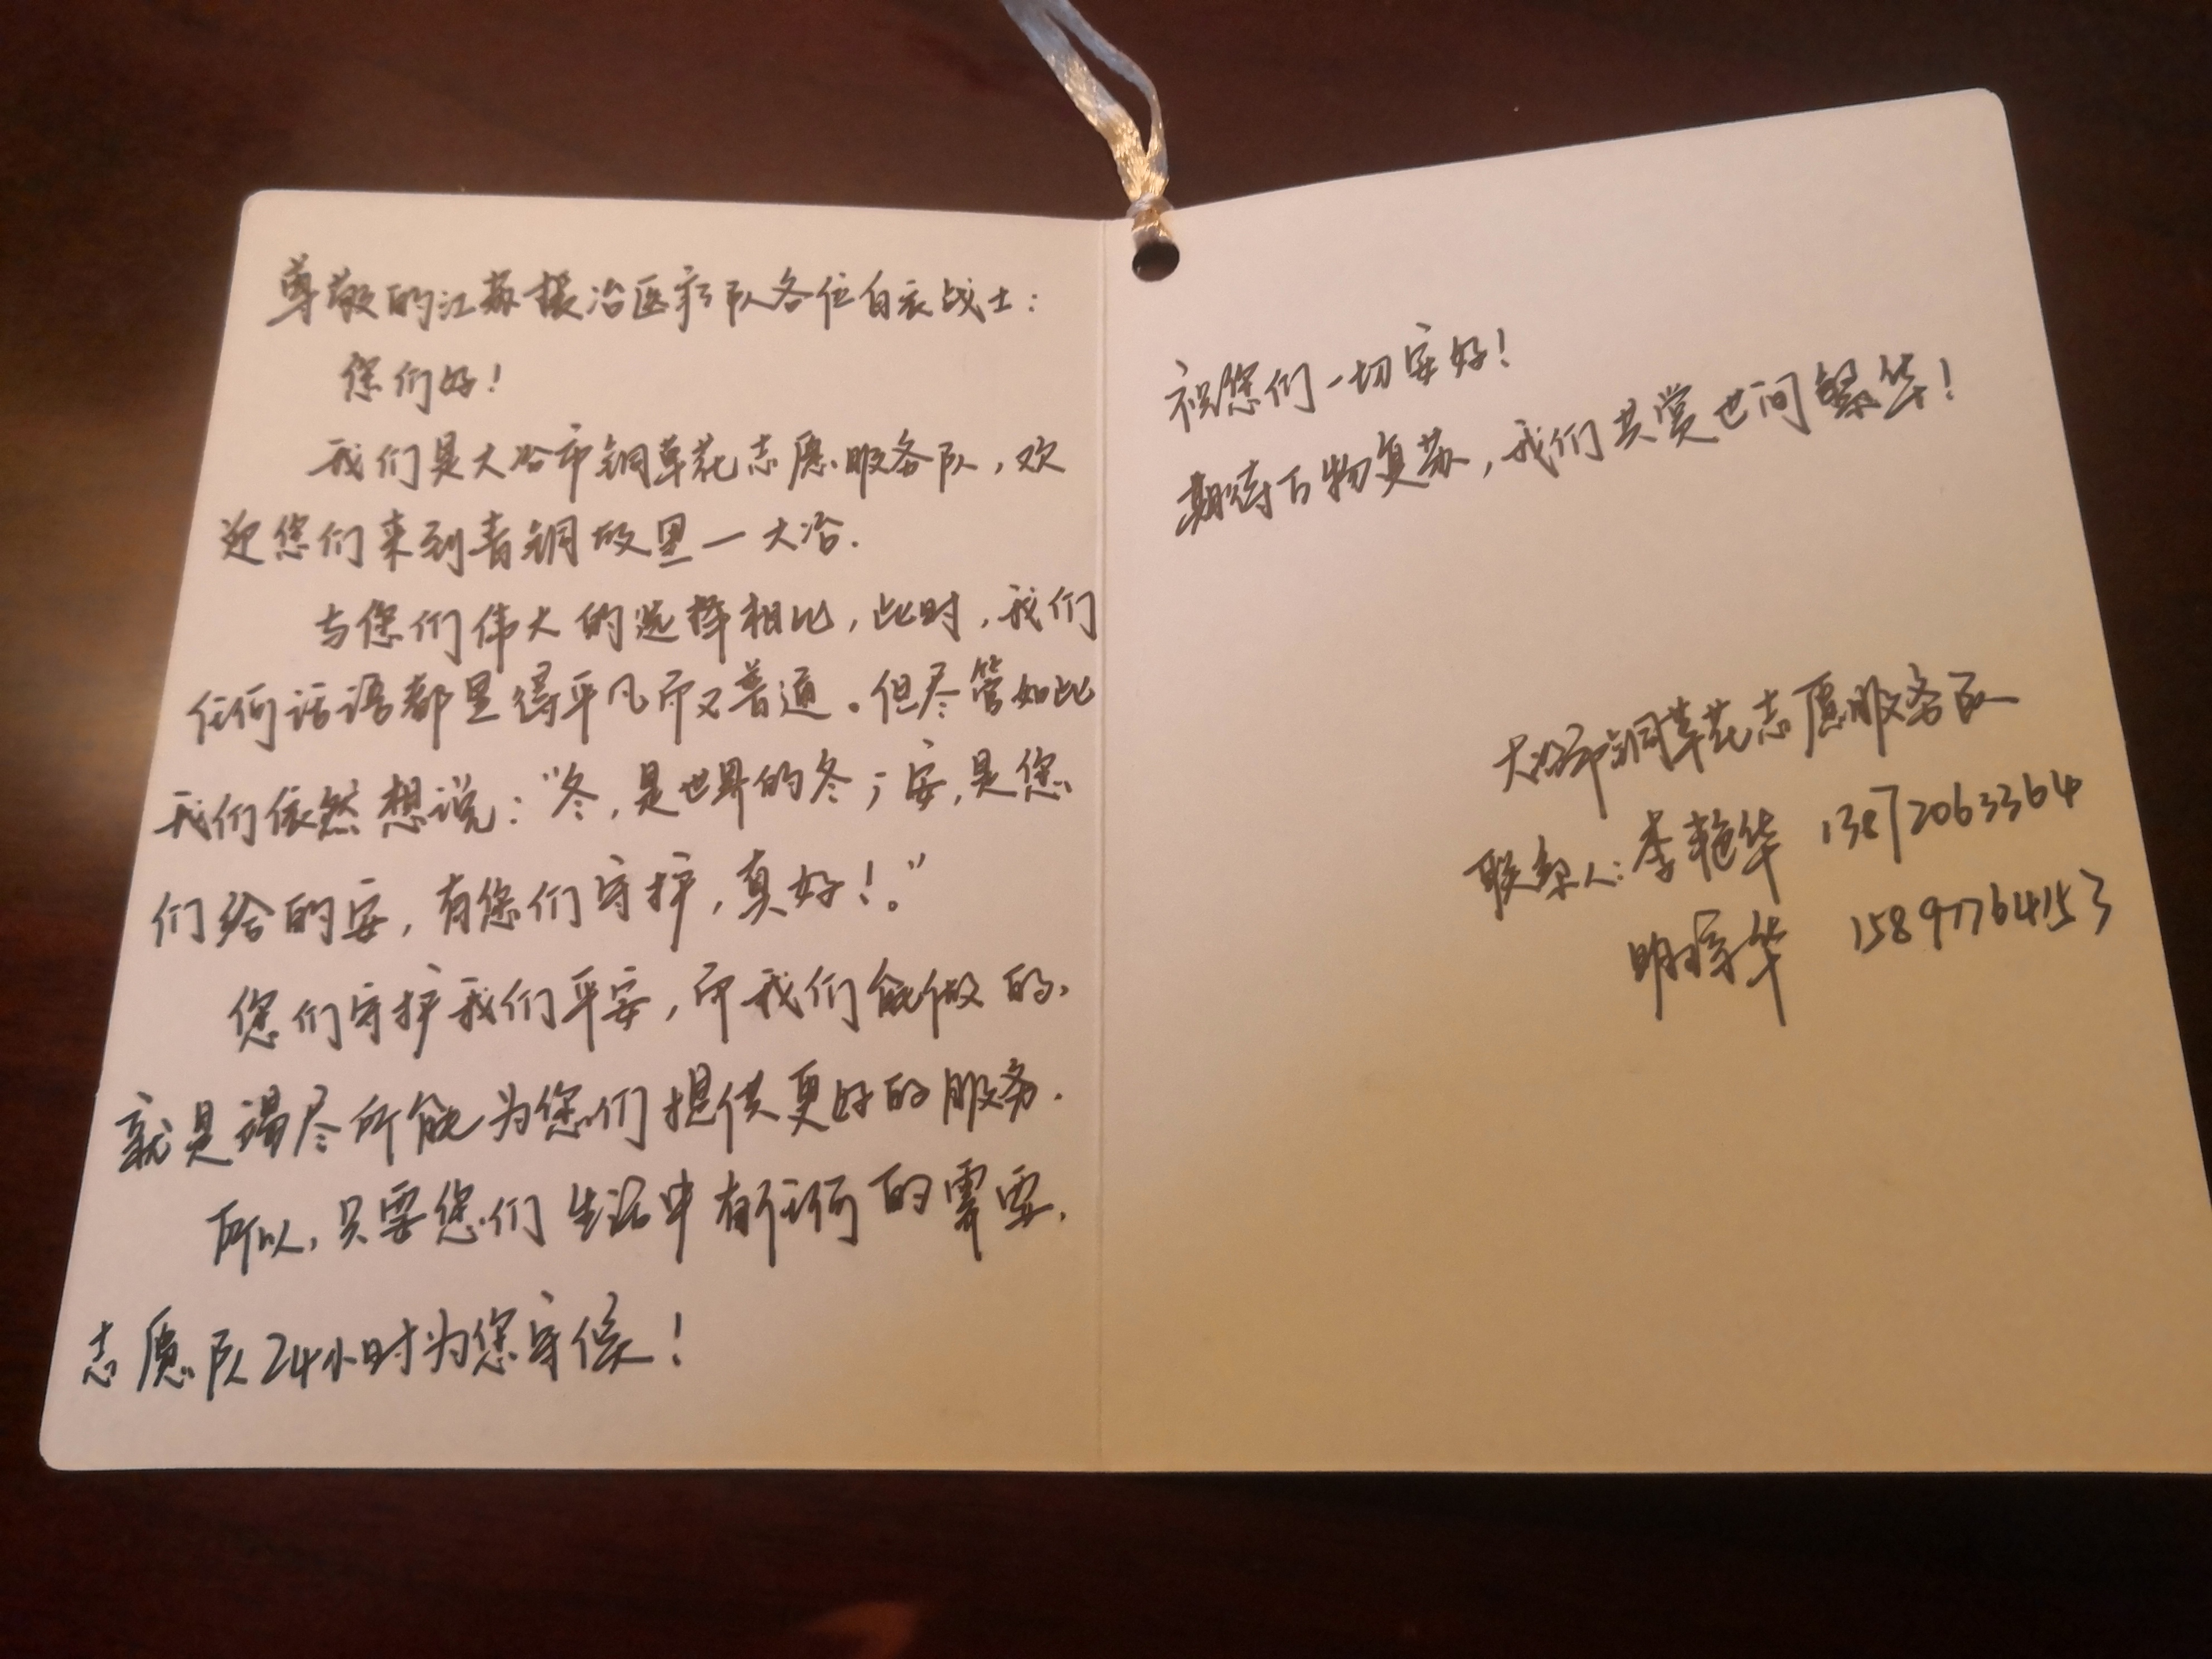 尊敬的江苏援冶医疗队各位白衣战士：
您们好！
我们是大冶市铜草花志愿服务队，欢
迎您们来到青铜故里—大冶.
与您们伟大的选择相比，此时，我们
任何话语都显得平凡而又普通。但尽管如此
我们依然想说：“冬，是世界的冬；安，是您
们给的安，有您们守护，真好！。”
您们守护我们平安，而我们能做的、
就是竭尽所能为您们提供更好的服务.
所以，只要您们生活中有任何的需要，
志愿队24小时为您守候！
祝您们一切安好！
期待万物复苏，我们共赏世间繁华！
大冶市铜草花志愿服务队
联系人：李艳华 13872063364
明 华 15897764153